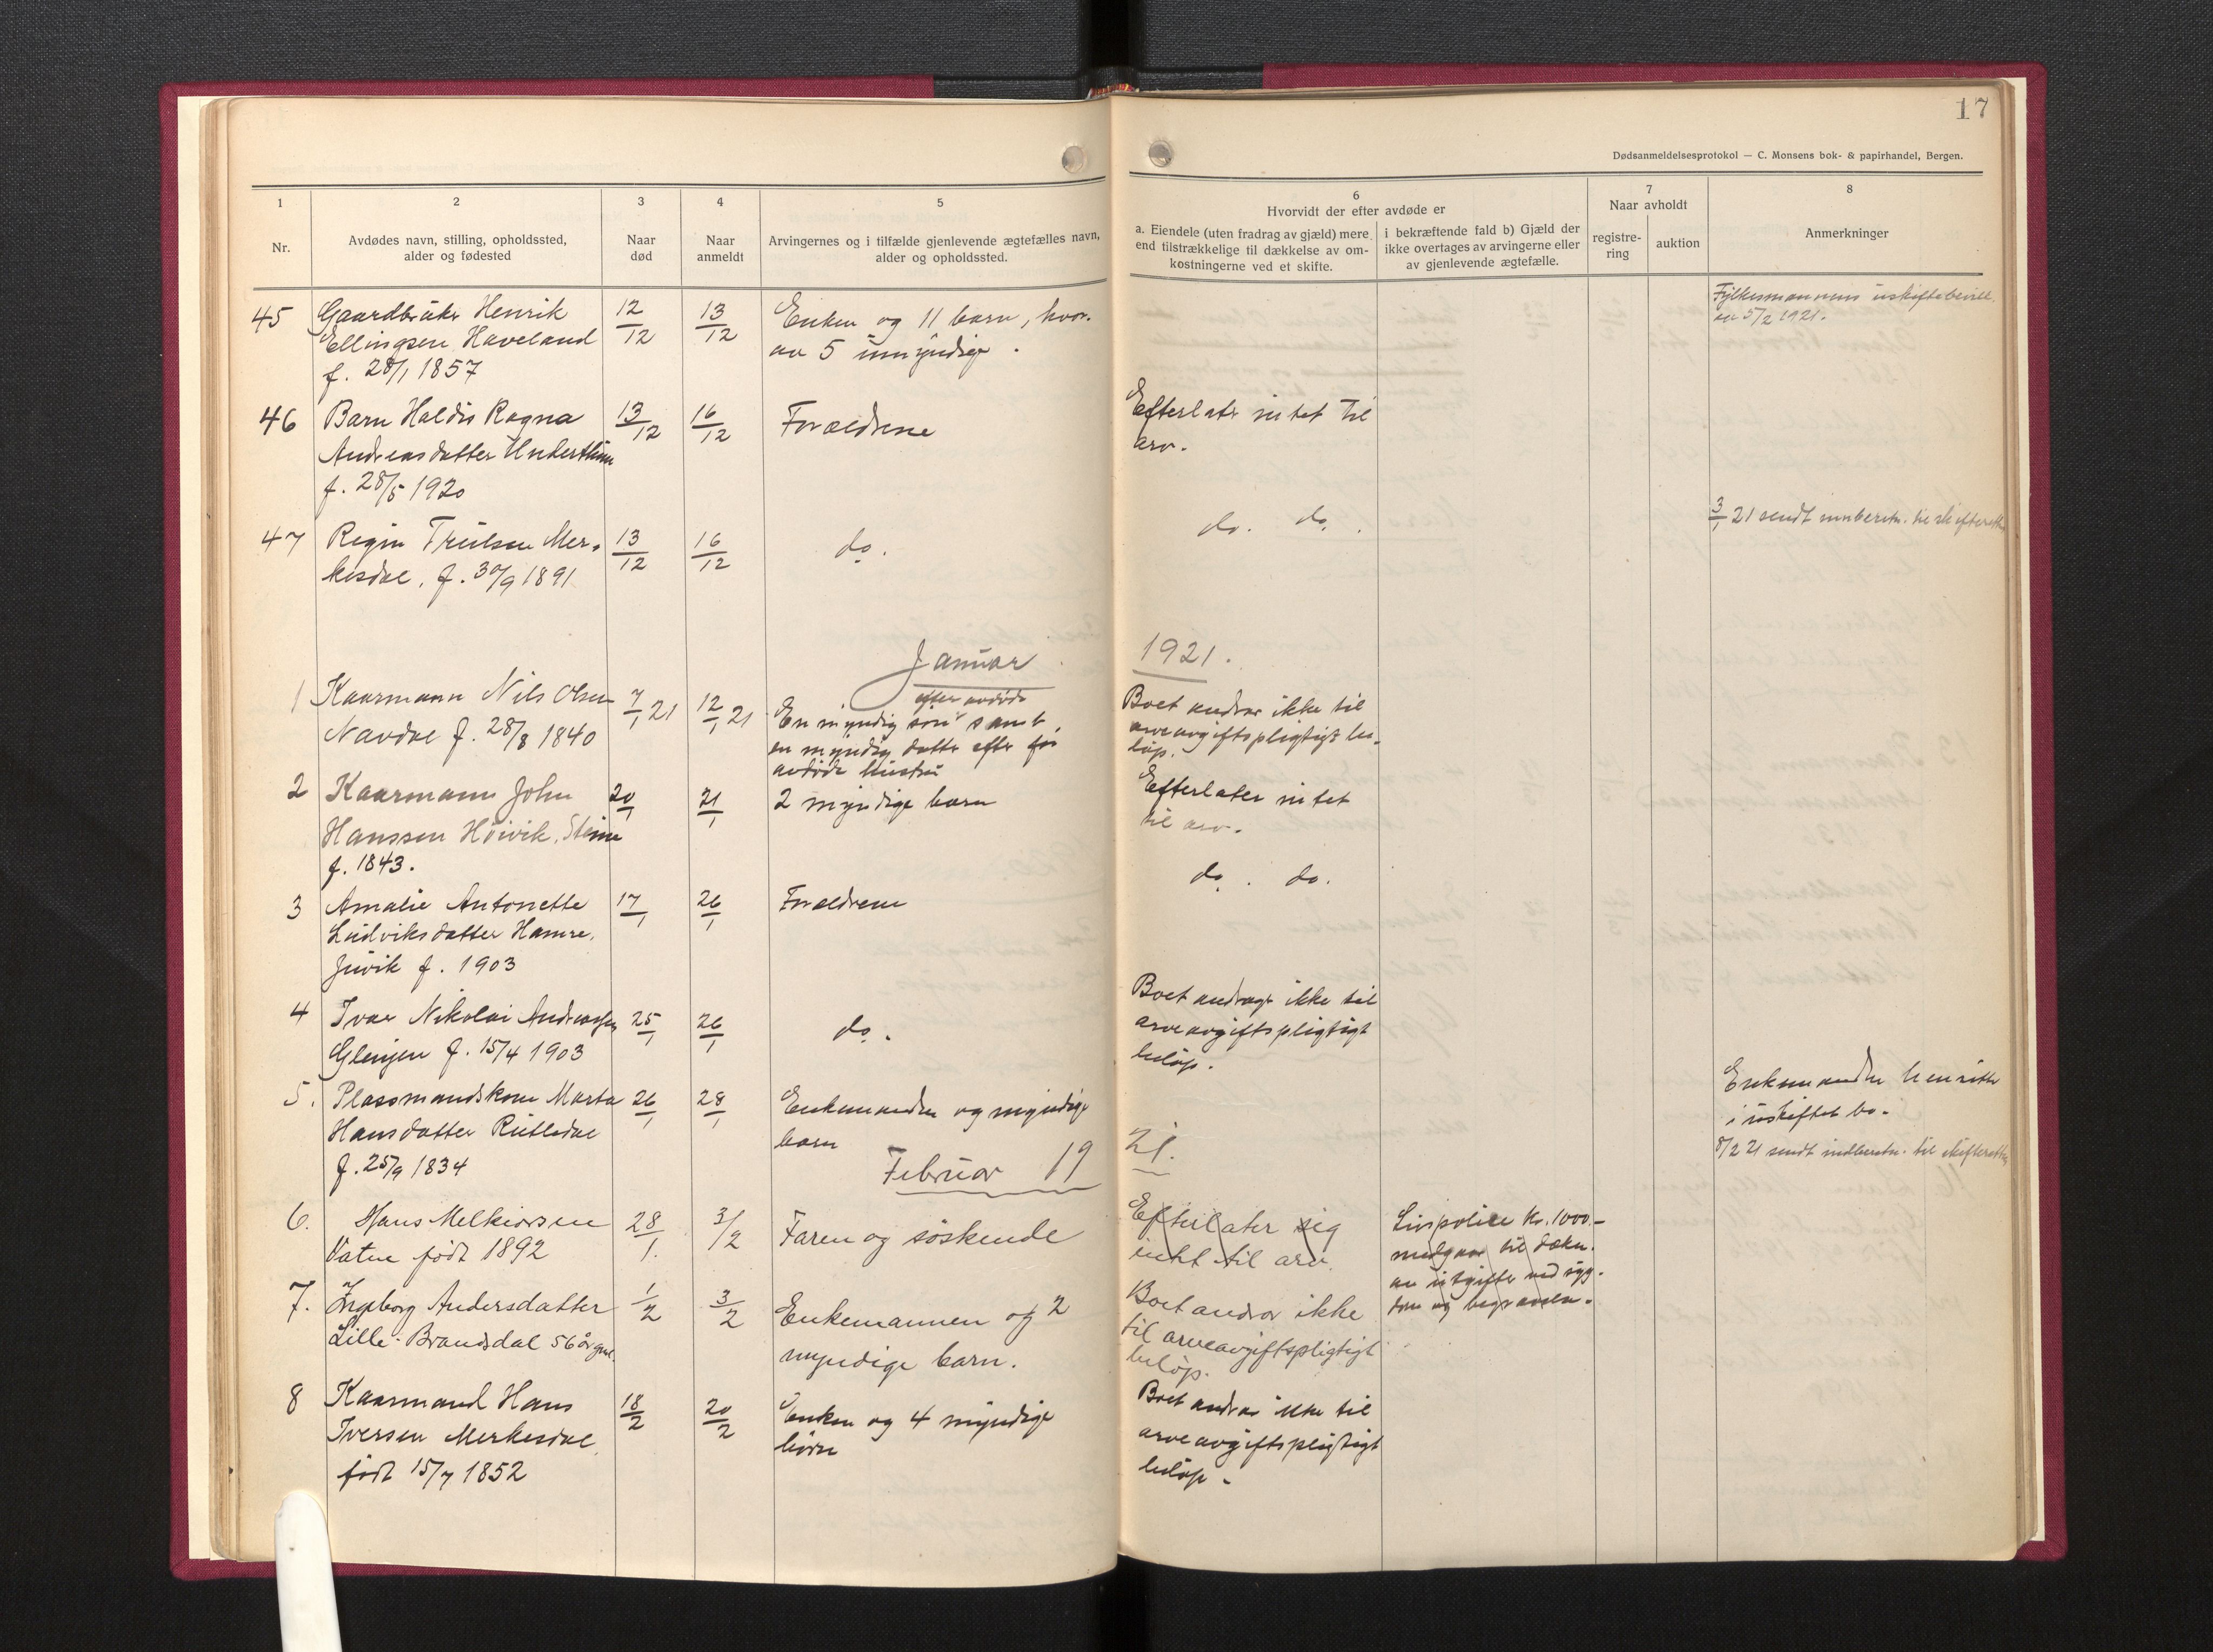 17
Dødsanmeldelsesprotokol — C. Monsens bok- & papirhandel, Bergen.
1
Nr.
2
Avdødes navn, stilling, opholdssted,
alder og fødested
3
Naar
død
4
Naar
anmeldt
5
Arvingernes og i tilfælde gjenlevende ægtefælles navn,
alder og opholdssted.
6
Hvorvidt der efter avdøde er
a. Eiendele (uten fradrag av gjæld) mere
end tilstrækkelige til dækkelse av om-
kostningerne ved et skifte.
i bekræftende fald b) Gjæld der
ikke overtages av arvingerne eller
av gjenlevende ægtefælle.
7
Naar avholdt
registre-
ring
auktion
8
Anmerkninger
45
Gaardbruker Henrik
Ellingsen Haveland
f. 28/1 1857
12/12
13/12
Enken og 11 barn, hvor-
av 5 umyndige.
Fylkesmannens uskiftebevill.
av 5/2 1921.
46
Barn Haldis Ragna
Andreasdatter
f. 28/5 1920
13/12
16/12
Forældrene
Efterlater intet til
arv.
47
Regin Trulsen Mer-
kesdal, f. 30/9 1891
13/12
16/12
do.
do. do.
3/1 21 sendt innberetn. til skifteretten
Januar 1921.
1
Kaarmann Nils Olsen
Navdal f. 28/8 1840
7/1 21
12/1 21
efter avdøde
En myndig søn samt
en myndig datter efter før
avdøde hustru
Boet andrar ikke til
arveavgiftspligtigt be-
løp.
2
Kaarmann John
Hanssen Høivik, Steine
f. 1843.
20/1
21/1
2 myndige barn
Efterlater intet
til arv.
3
Amalie Antonette
Ludviksdatter Hamre,
Juvik f. 1903
17/1
26/1
Forældrene
do. do.
4
Ivar Nikolai Andreassen
Glenjen f. 15/4 1903
25/1
26/1
do.
Boet andrager ikke til
arveavgiftspligtigt
beløp.
5.
Plassmandskone Marta
Hansdatter Rutledal
f. 25/9 1834
26/1
28/1
Enkemanden og myndige
barn
Enkemanden hensitter
i uskiftet bo.
8/2 21 sendt indberetn. til skifteretten
Februar 1921.
6.
Hans Melkiorsen
Vatne født 1892
28/1.
3/2
Faren og søskende
Efterlater sig
intet til arv.
Livspolice kr. 1000.-
medgaar til dækn.
av utgifter ved syg-
dom og begravelse.
7.
Ingeborg Andersdatter
Lille-Brandsdal 56 år gml.
1/2
3/2
Enkemannen og 2
myndige barn.
Boet andrar ikke
til arveavgiftspligtigt
beløp.
8
Kaarmand Hans
Iversen Merkesdal,
født 15/7 1852
18/2
20/2
Enken og 4 myndige
børn
Boet andrar ikke til
arveavgiftspligtigt
beløp.